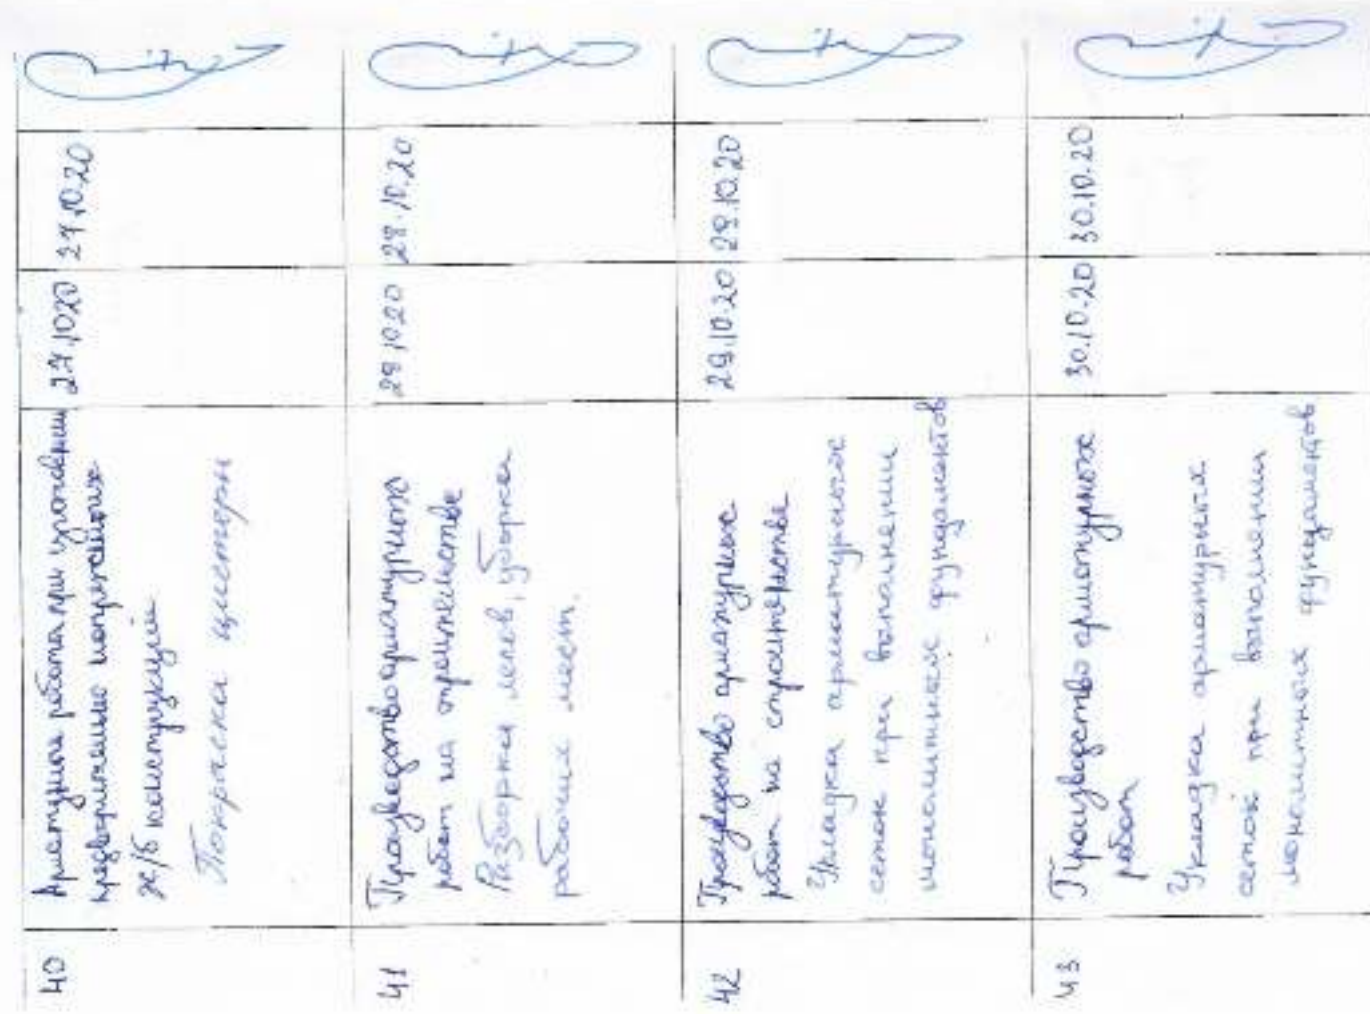 40
Арматурная работа при изготовлении
предварительно напряженных
ж/б конструкций
Покраска цистерн
27.10.20
27.10.20
41
Производство арматурных
работ на строительстве
Разборка лесов, уборка
рабочих мест.
28.10.20
28.10.20
42
Производство арматурных
работ на строительстве
Укладка арматурных
сеток при выполнении
монолитных фундаментов
29.10.20
29.10.20
43
Производство арматурных
работ
Укладка арматурных
сеток при выполнении
монолитных фундаментов
30.10.20
30.10.20